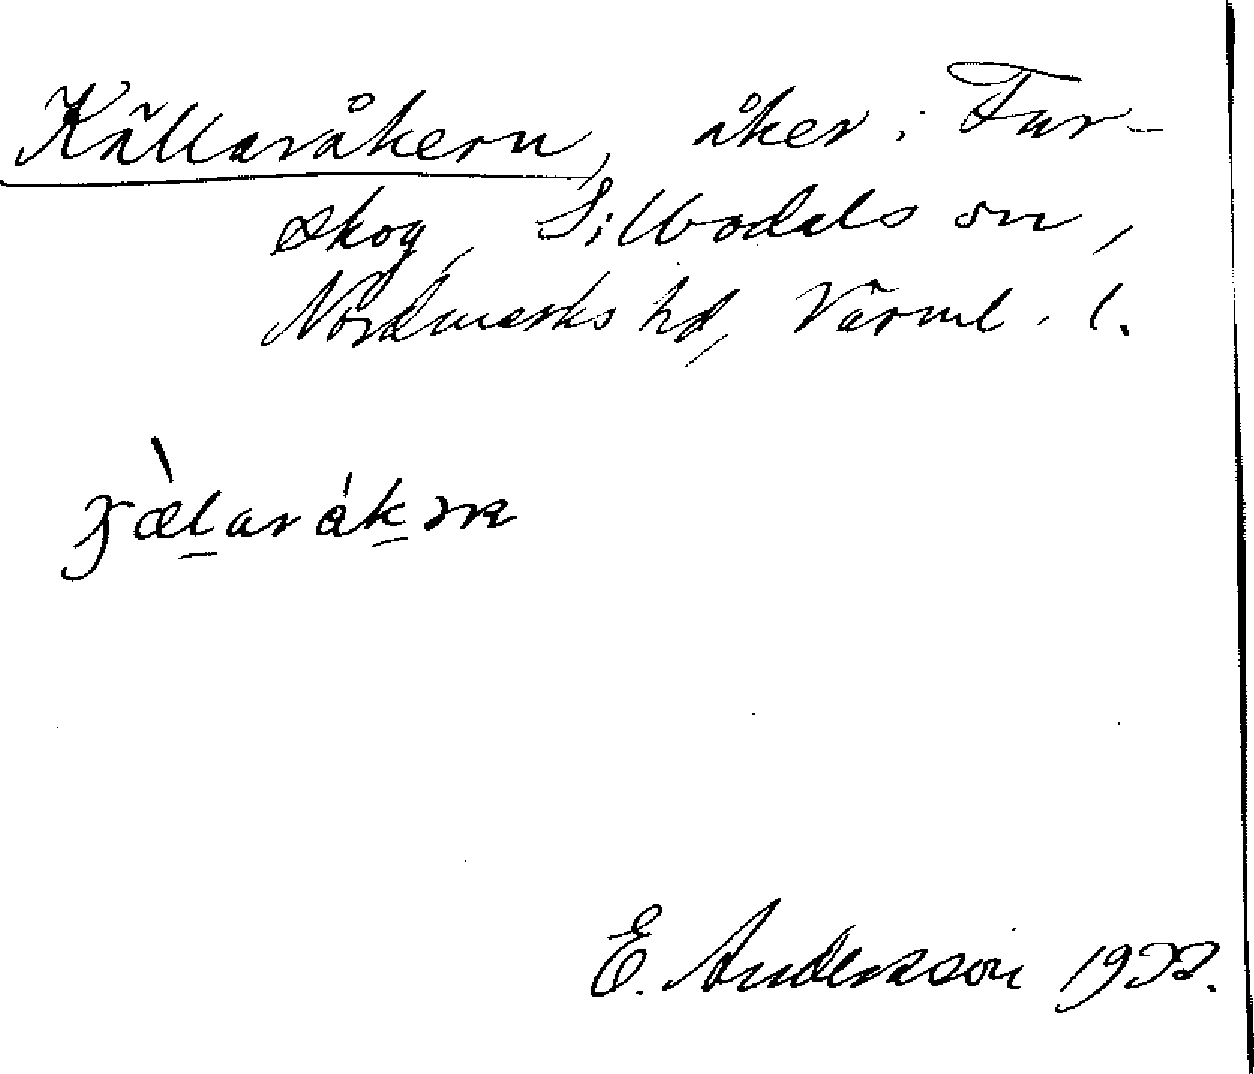 Källaråkern, åker i Fur-
skog, Silbodals sn,
Nordmarks hd, Värml. l.
E. Andersson 1932.